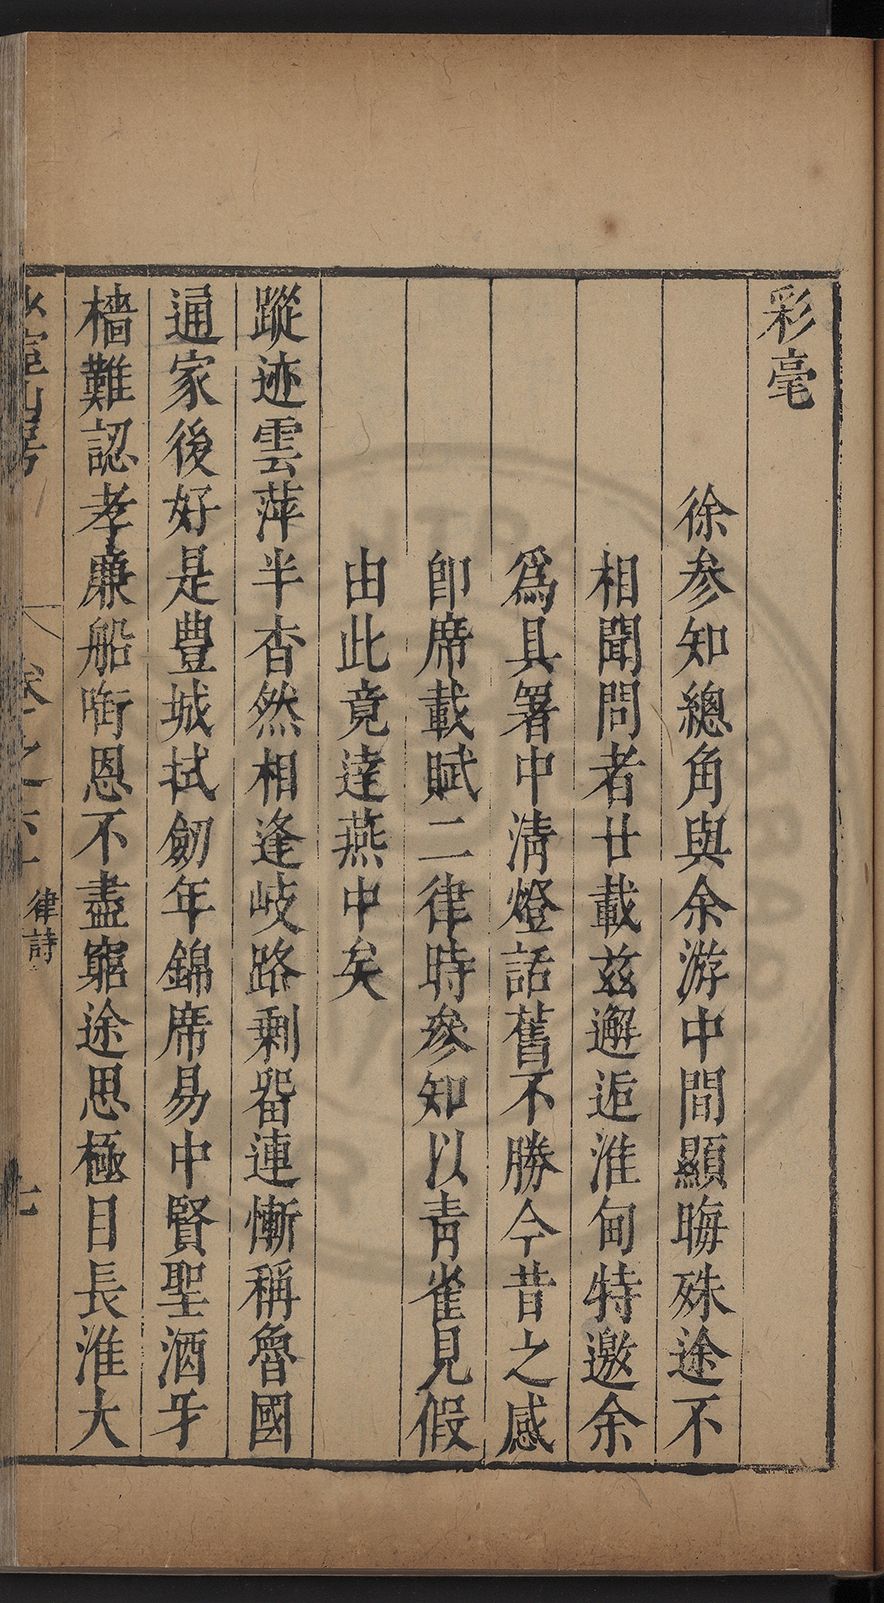 彩毫
徐参知總角與余游中間顯晦殊途不
相聞問者廿載兹邂逅淮甸特邀余
爲具署中清燈話舊不勝今昔之感
即席載賦二律時參知以青雀見假
由此竟達燕中矣
蹤迹雲萍半杳然相逢岐路剩畱連慚稱魯國
通家後好是豊城拭劒年錦席易中賢聖酒牙
檣難認孝廉船啣恩不盡窮途思極目長淮大
律詩